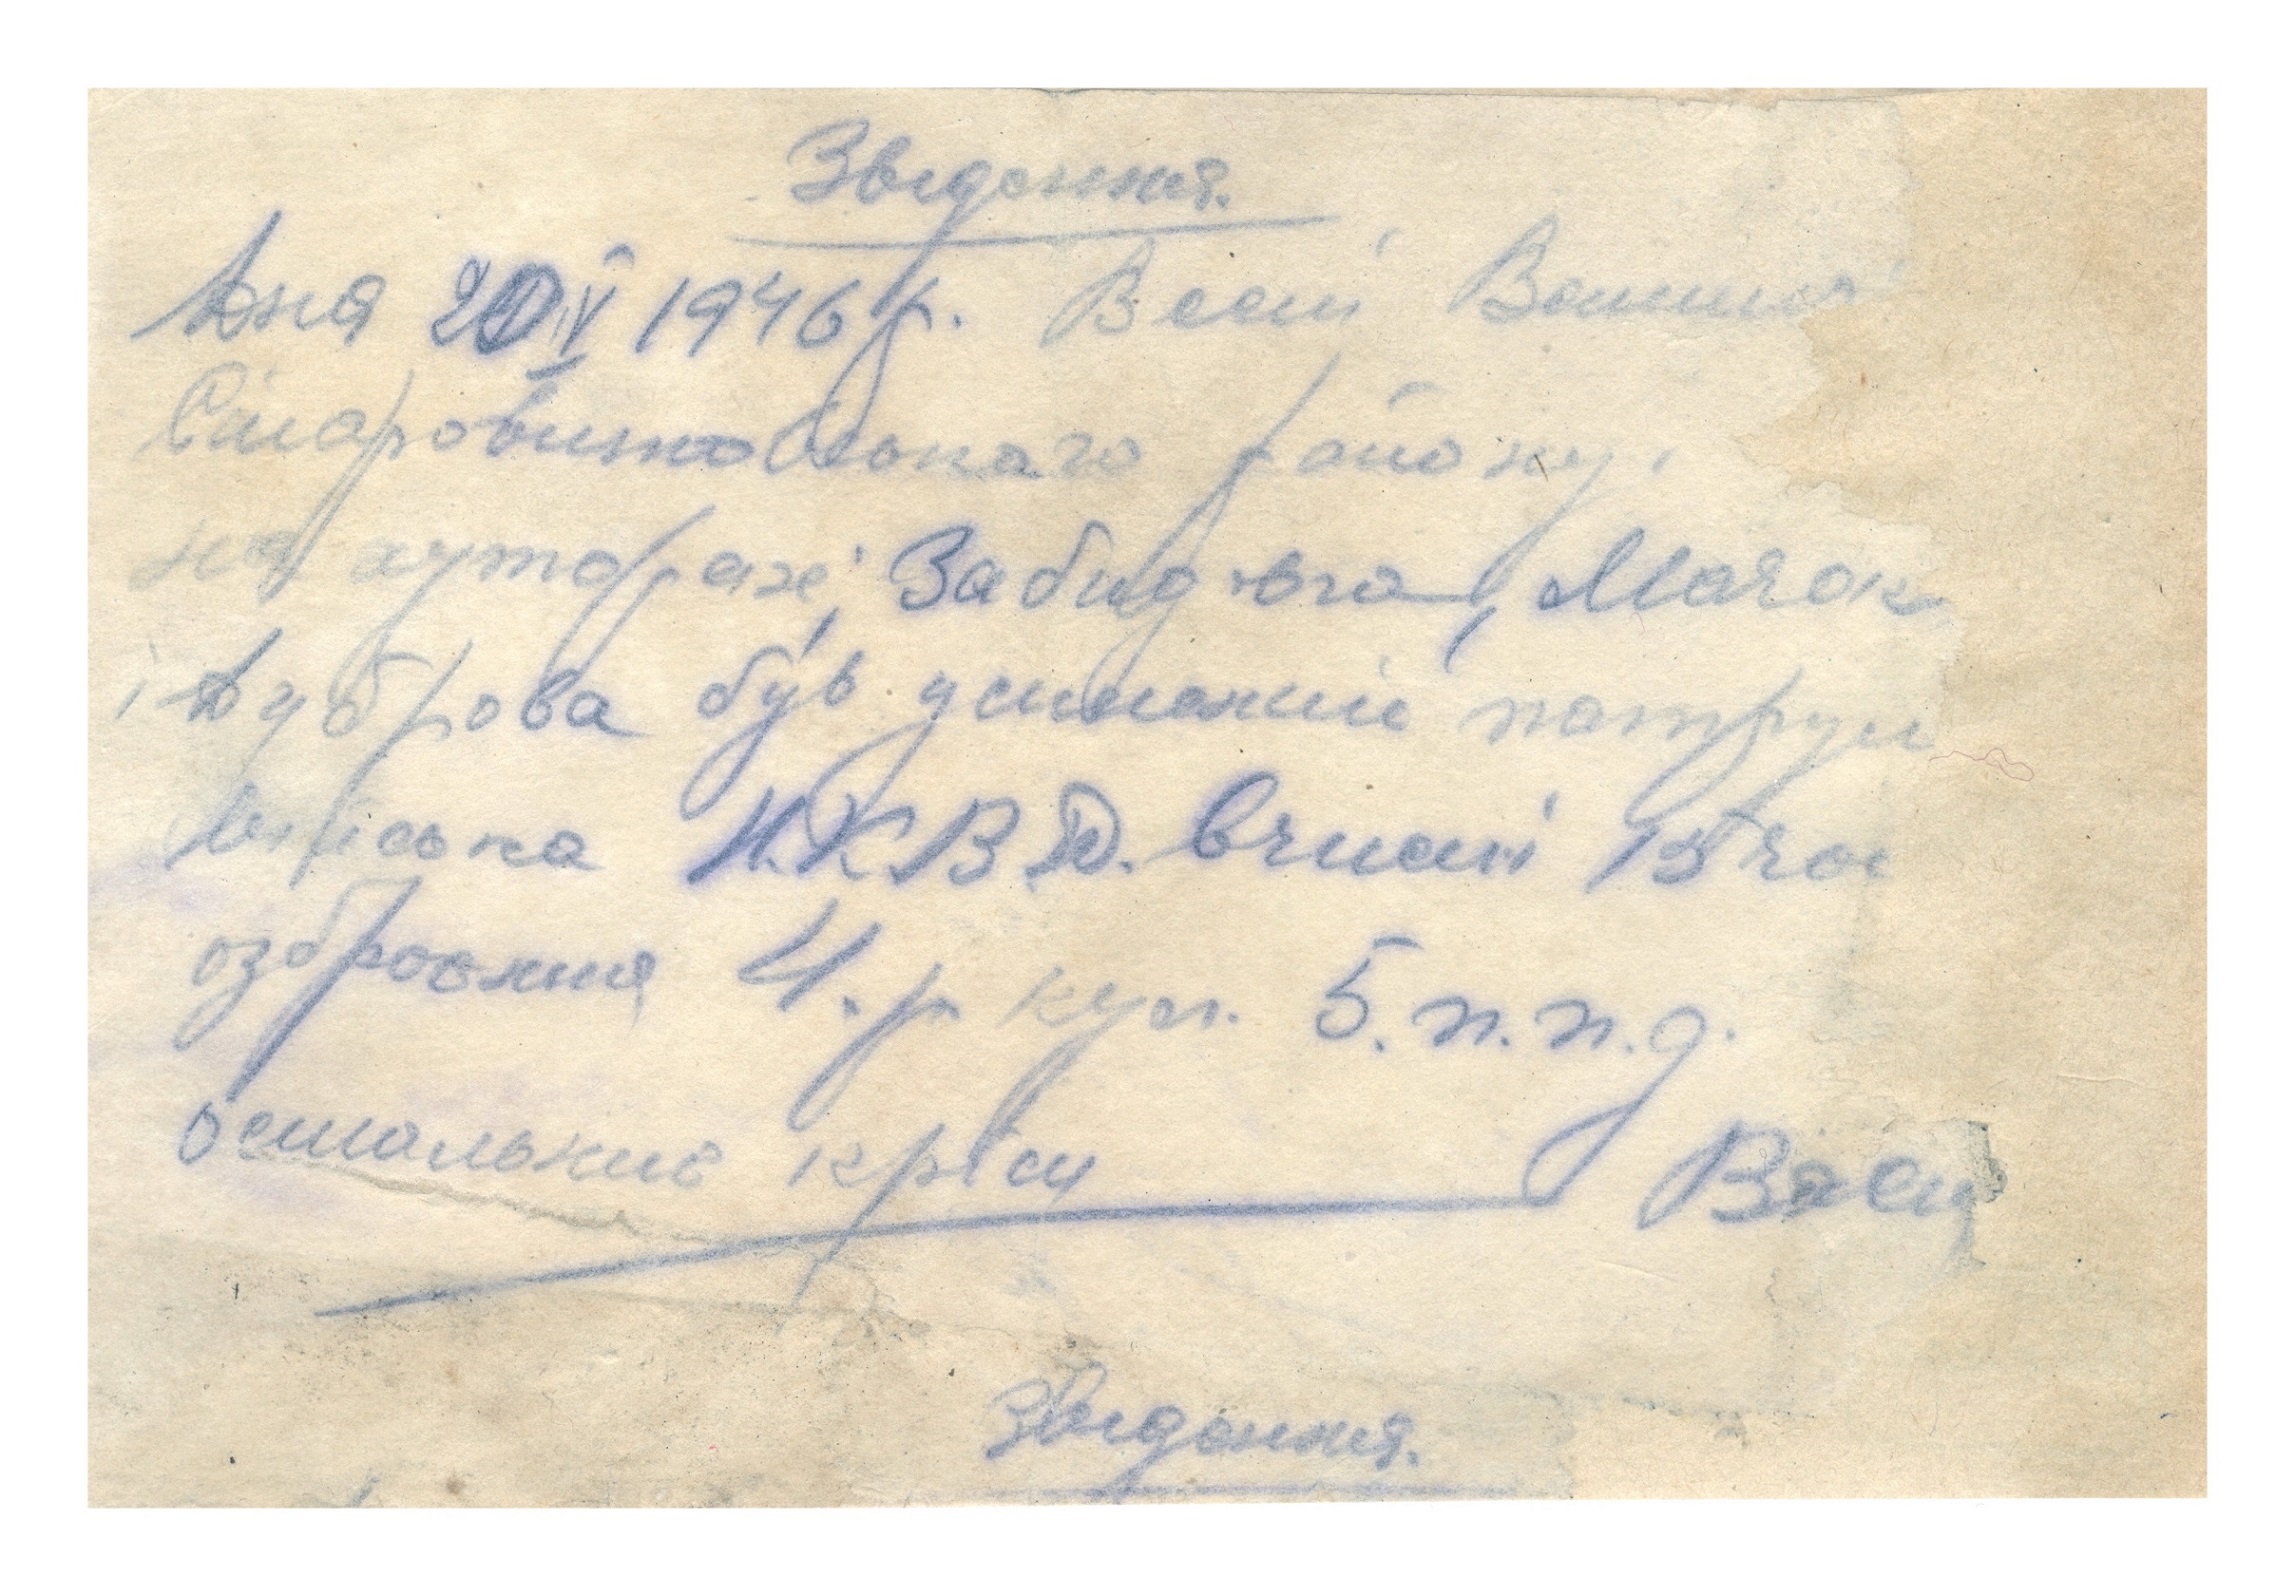 Звідання.
Дня 20 IV 1946 р. В селі
Старовижовського району.
на хуторах, Забидюга, Мачок
і Дуброва був усилений патрул
війська Н.К.В.Д. вчислі 15 чол
озброєння 4. р кул. 5. п.п.д.
остальний кріси
Звідання.